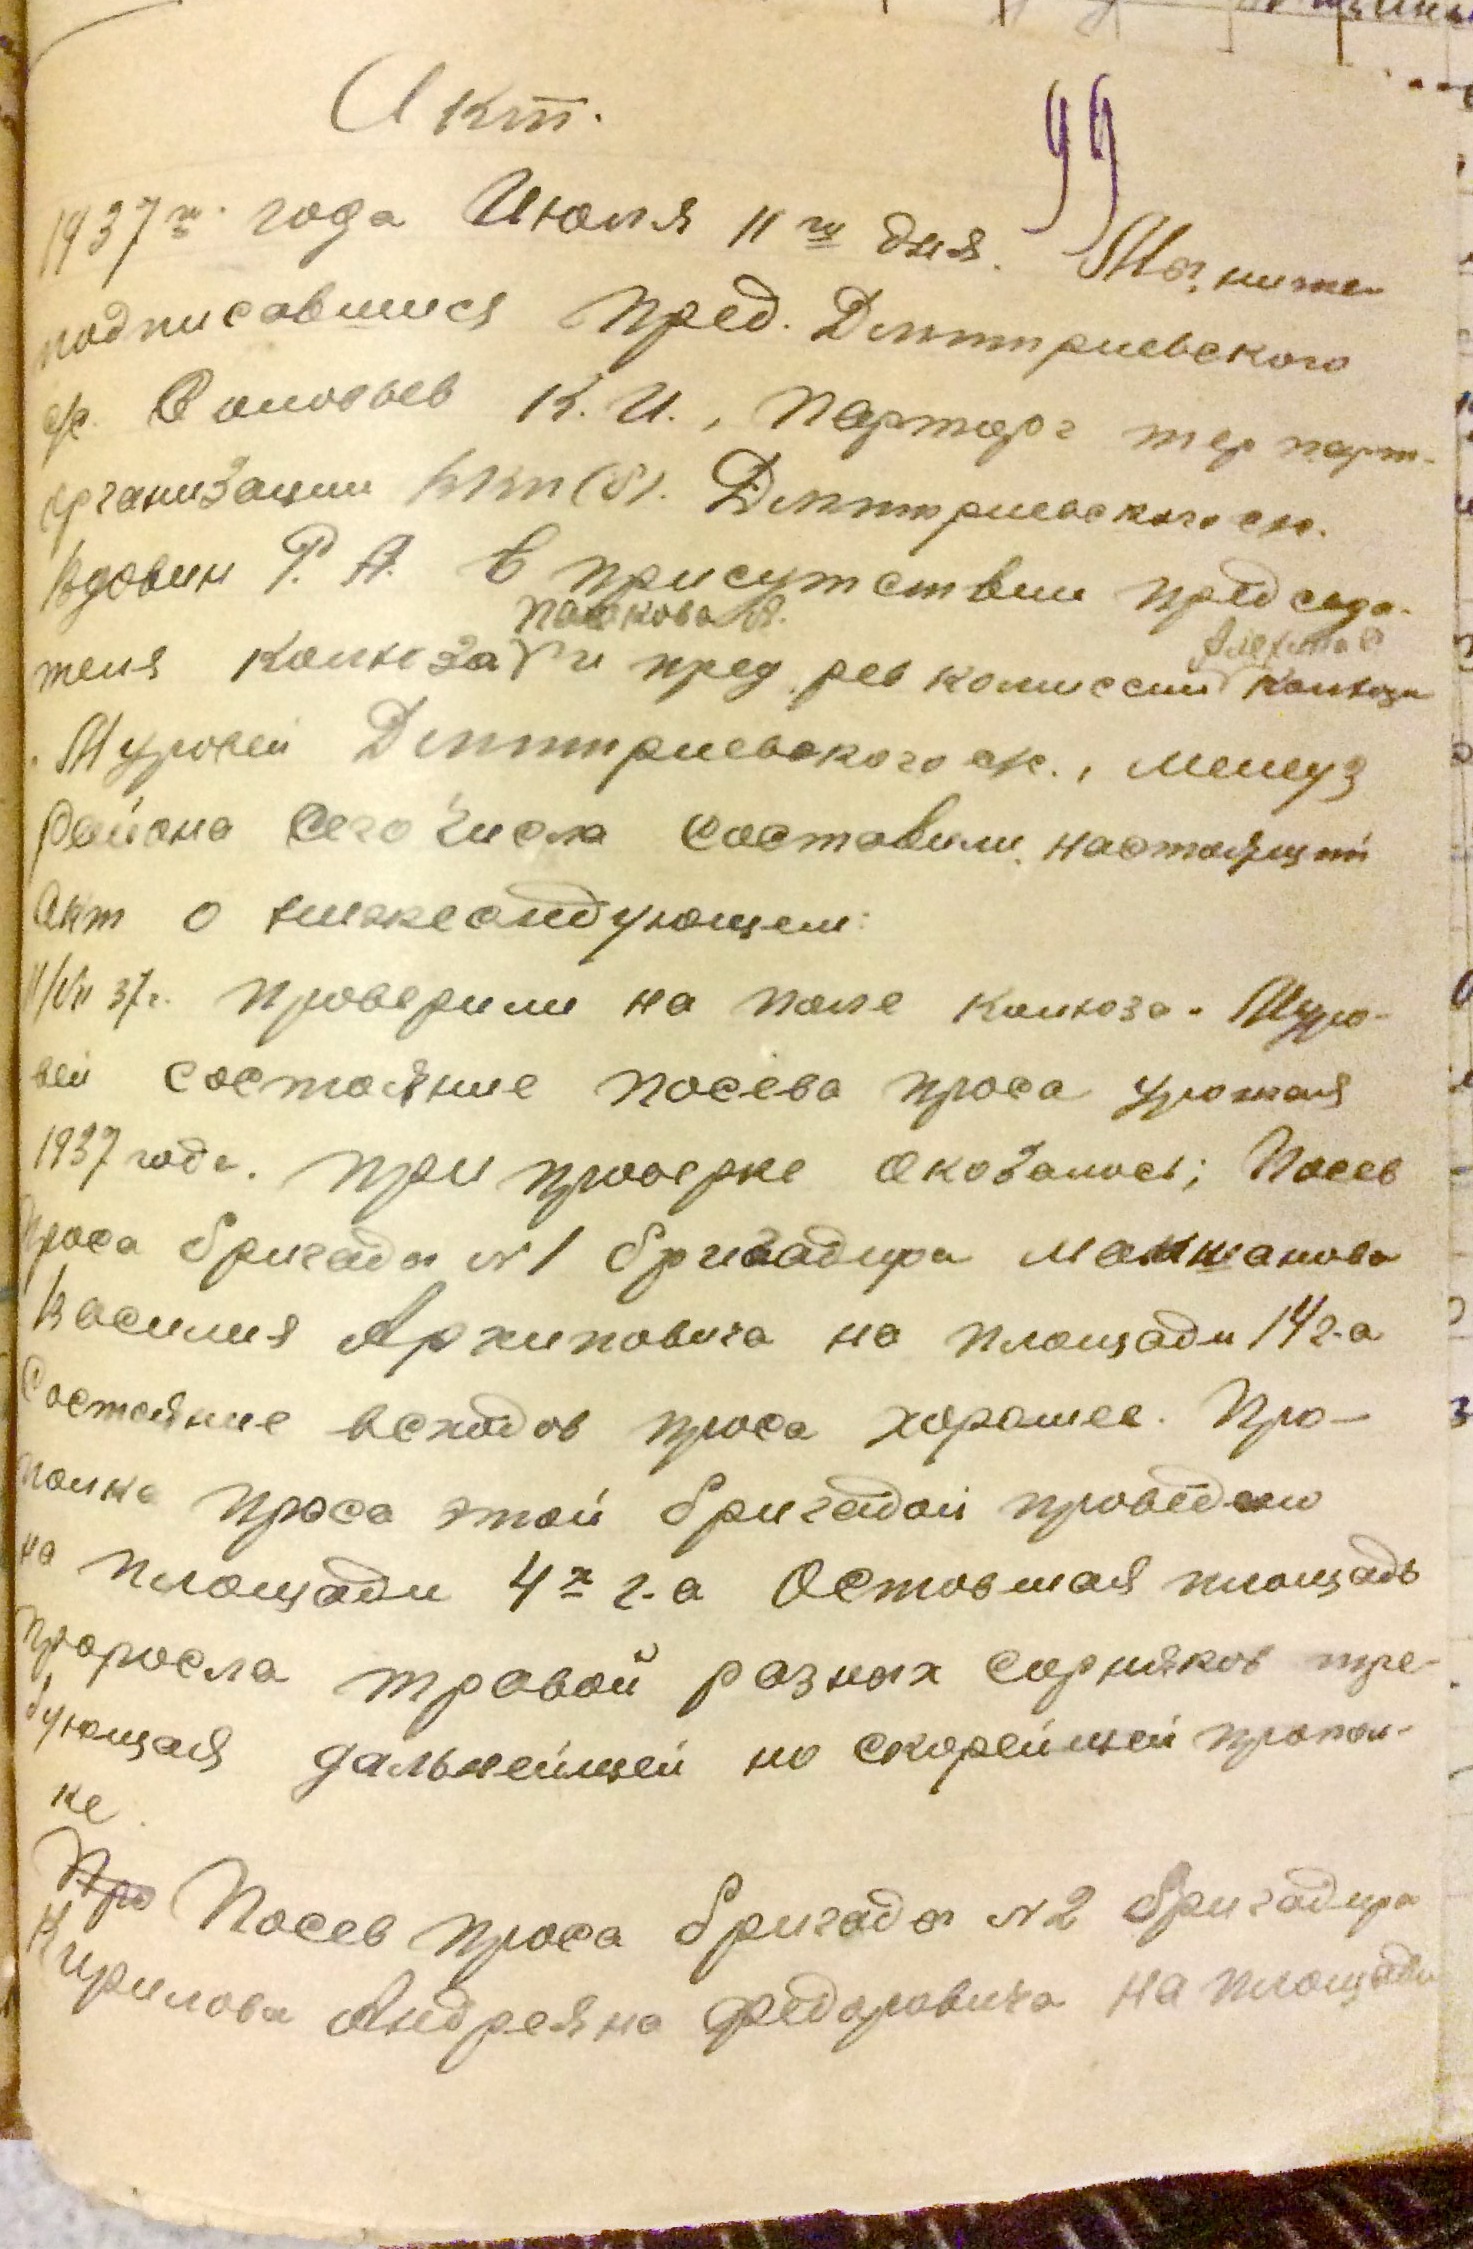 99
Акт.
1937 г. года Июля 11го дня. Мы, ниже
подписавшиеся пред. Дмитриевского
с/с. Соловьев К. И., парторг тер парт-
организации ВКП(б). Дмитриевского с/с.
Вдовин Р. А. в присутствии председа-
Пашкова
теля колхоза и пред. рев комиссии колхоза
Журовей Дмитриевского с/с., Мелеуз
района сего числа составили настоящий
акт о нижеследующем:
11/VII 37г. проверили на поле колхоза. Журо-
вей состояние посева проса урожая
1937 года. при проверке оказалось; Посев
проса бригады №1 бригадира
Василия Архиповича на площади 14 г-а
Состояние всходов проса хорошее. Про-
полка проса этой бригадой проведено
на площади 4х г-а Оставшая площадь
проросла травой разных сорняков тре-
бующая дальнейшей но скорейшей пропол-
ке.
Про Посев проса бригады №2 бригадира
Кирилова Андреяна Федоровича на площади